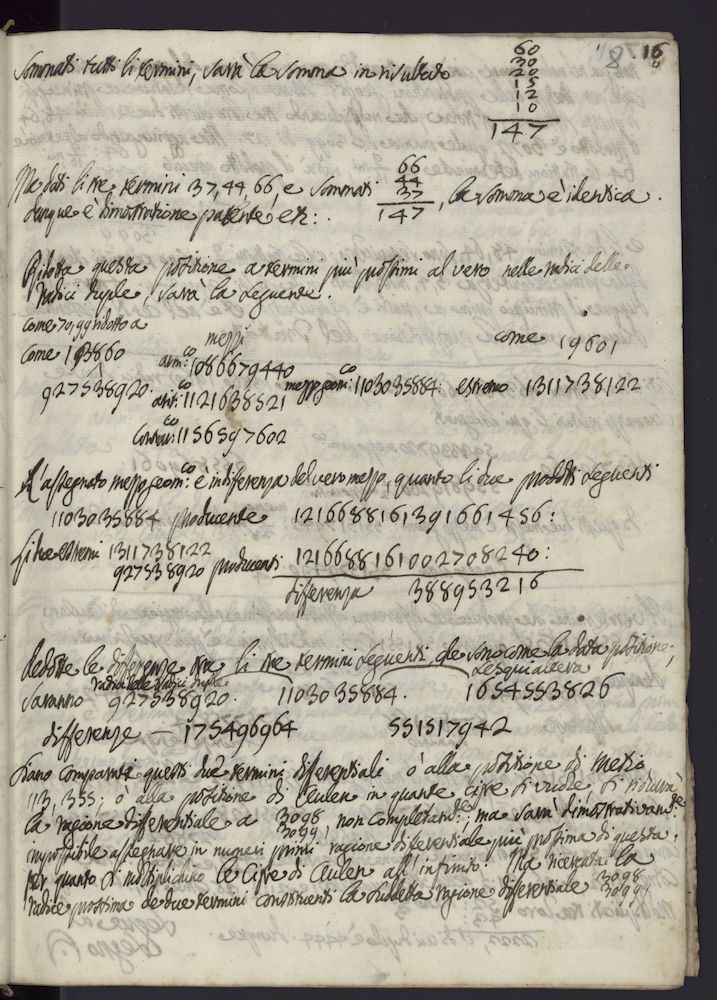 18 16
Sommati tutti li termini, sarà la somma in risultato
60
30
20
15
12
10
147
Ma dati li tre termini 37, 44, 66, e sommati 66 44 37 147, la somma è identica.
dunque è dimostrazione patente, etc:.
Ridotta questa posizione a termini più prossimi al vero nelle radici delle
radici duple, sarà la seguente.
come 70,99 ridotto a
come 13860 mezzi come 19601
arm:co 1086679440
927538920. arit:co 1121638521 mezzo geom:co 1103035884: estremo 1311738122
contrar:co 1156597602
L'assegnato mezzo geom:co è in differenza del vero mezzo, quanto li due prodotti seguenti
1103035884 producente 1216688161391661456:
li due estremi 1311738122
927538920 producenti 1216688161002708240:
differenza 388953216
dedotte le differenze tra li tre termini seguenti, che sono come la data posizione,
radice delle radici duple sesquialtera
saranno 927538920. 1103035884. 1654553826
differenze — 175496964 551517942
siano comparati questi due termini differenziali o alla posizione di Metio
113, 355; o alla posizione di Ceulen in quante cifre si vuole, si ridurrà
la ragione differenziale a 3098 3099, non completand:; ma sarà dimostrativam:te
impossibile assegnare in numeri primi ragione differenziale più prossima di questa,
per quanto si moltiplichino le cifre di Ceulen all'infinito. Ma ricercata la
radice prossima de due termini constituenti la suddetta ragione differenziale 3098 3099,